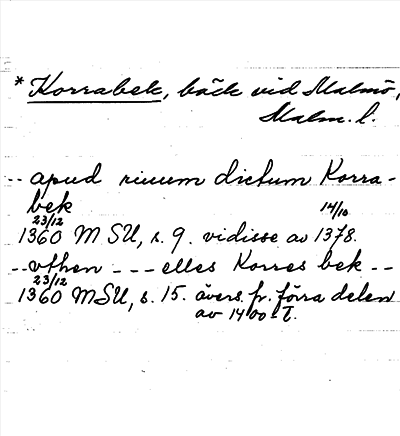 * Korrabek, bäck vid Malmö,
Malm. l.
-- apud riuum dictum Korra-
bek
23/12 14/10
1360 MSU, s. 9. vidisse av 1378.
-- vthen --- elles Korres bek --
23/12
1360 MSU, s. 15. övers. fr. förra delen
av 1400-t.